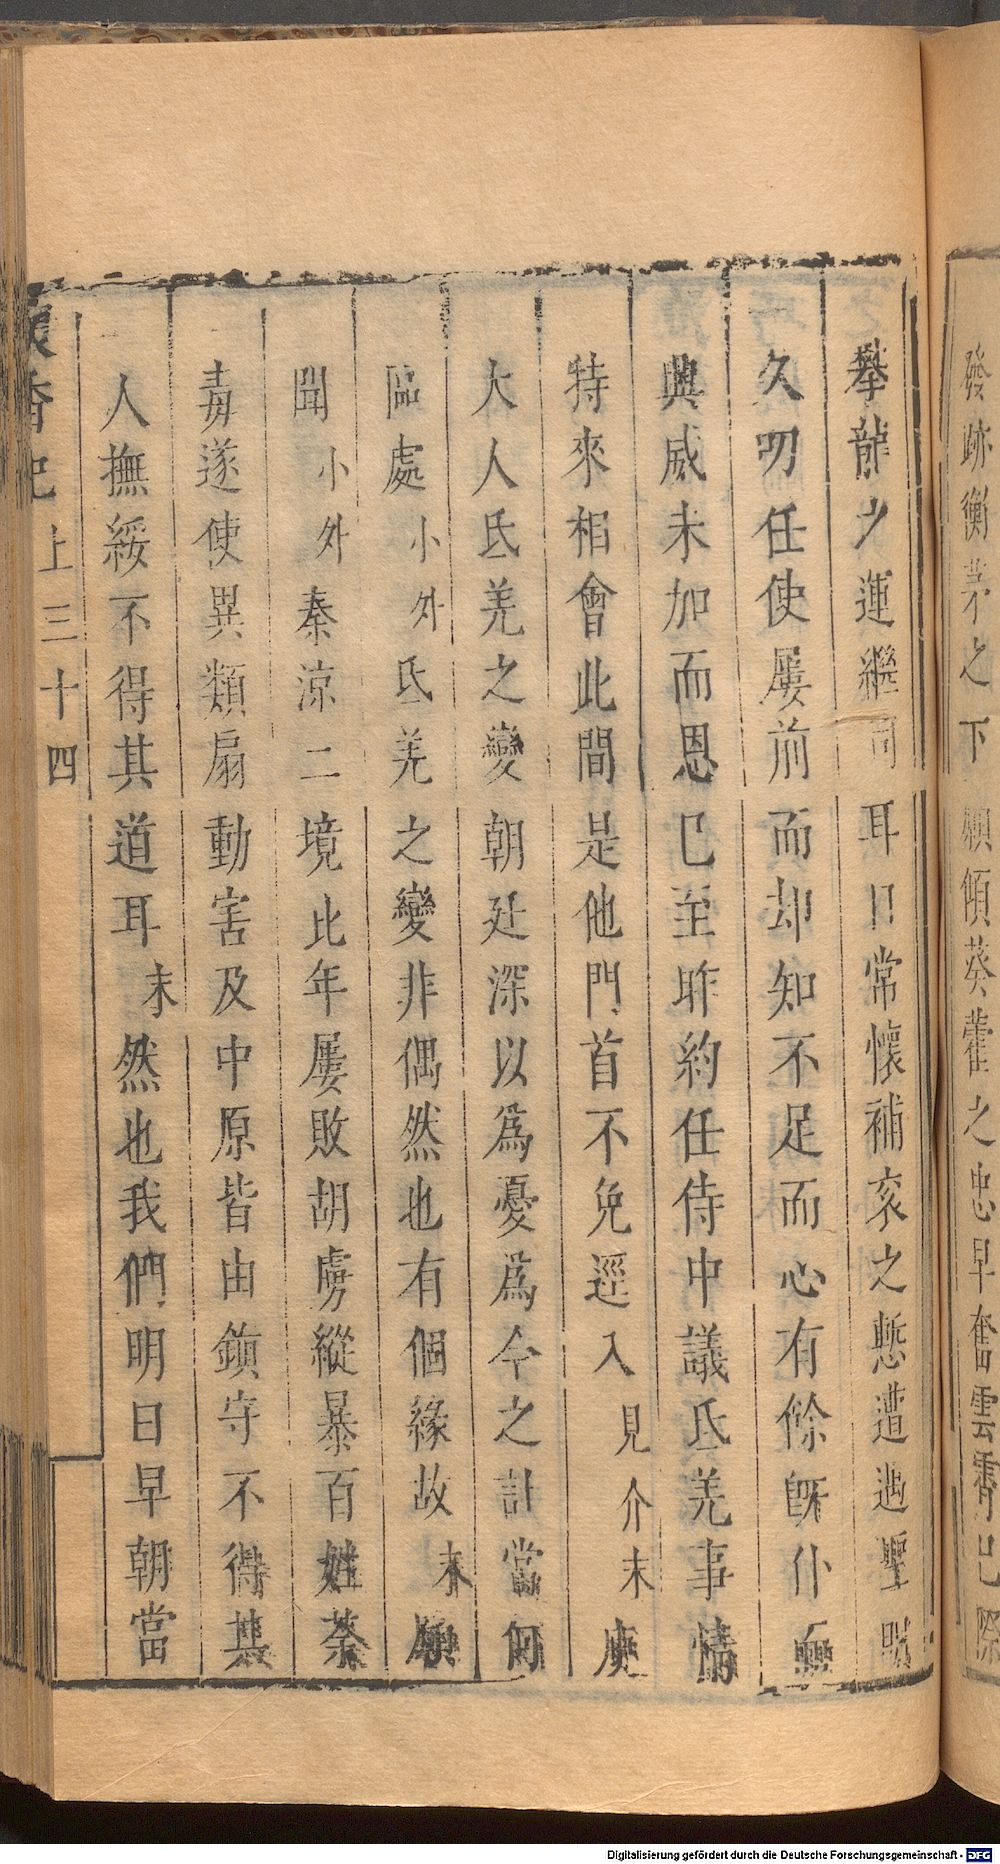 發跡衡茅之下願傾葵藿之忠早奮雲霄已際
攀龍之運繼司耳目常懷補衮之慙遭遇聖明
久叨任使屢前而却知不足而心有餘旣仆而
興威未加而恩已至昨約任侍中議氐羌事情
特來相會此間是他門首不免逕入見介末庾
大人氐羌之變朝廷深以爲憂爲今之計當何
區處小外氐羌之變非偶然也有個緣故末願
聞小外秦涼二境比年屢敗胡虜縱暴百姓荼
毒遂使異類扇動害及中原皆由鎭守不得其
人撫綏不得其道耳末然也我們明日早朝當
懷香記上三十四
Digitalisierung gefördert durch die Deutsche Forschungsgemeinschaft - DFG